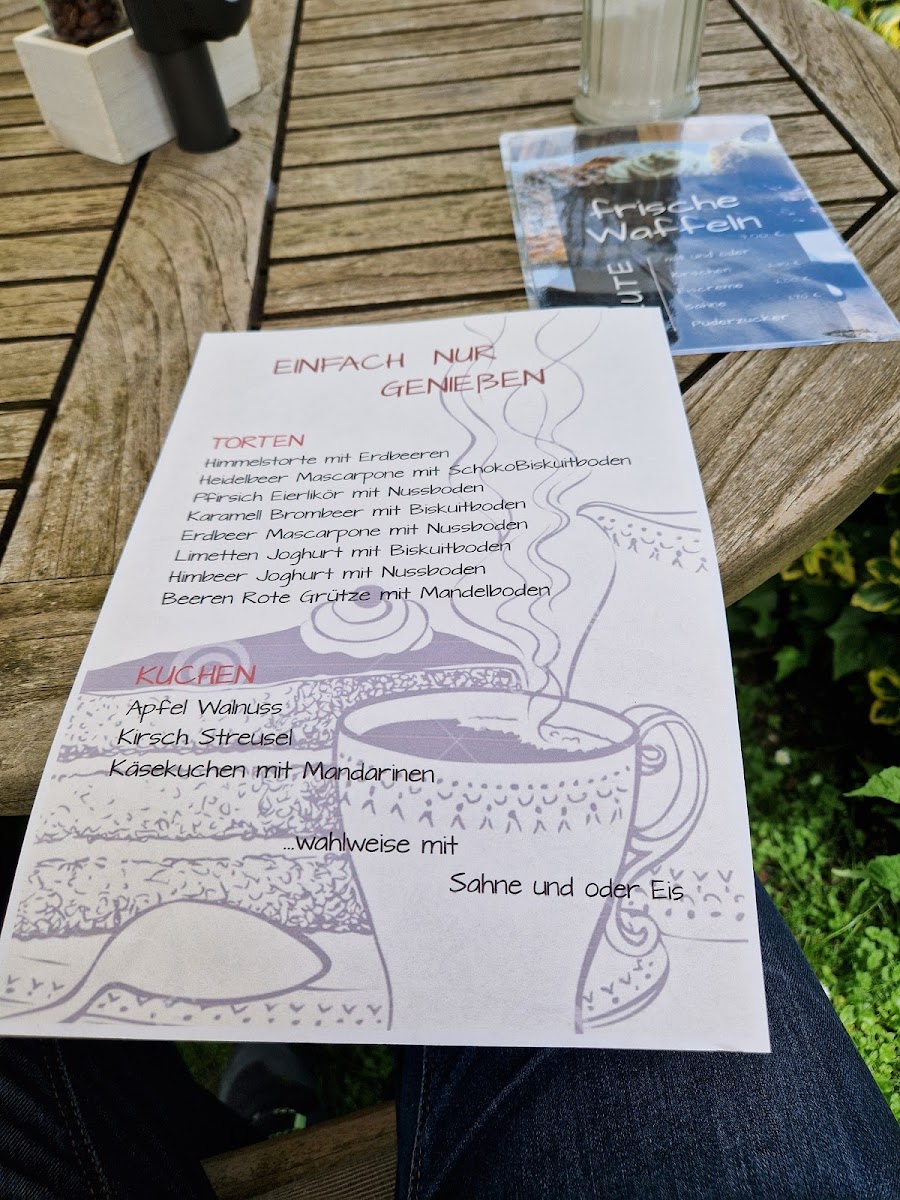 frische
Waffeln
mit und oder
Sahne
Puderzucker
EINFACH NUR
GENIEßEN
TORTEN
Himmelstorte mit Erdbeeren
Heidelbeer Mascarpone mit SchokoBiskuitboden
Pfirsich Eierlikör mit Nussboden
Karamell Brombeer mit Biskuitboden
Erdbeer Mascarpone mit Nussboden
Limetten Joghurt mit Biskuitboden
Himbeer Joghurt mit Nussboden
Beeren Rote Grütze mit Mandelboden
KUCHEN
Apfel Walnuss
Kirsch Streusel
Käsekuchen mit Mandarinen
...wahlweise mit
Sahne und oder Eis